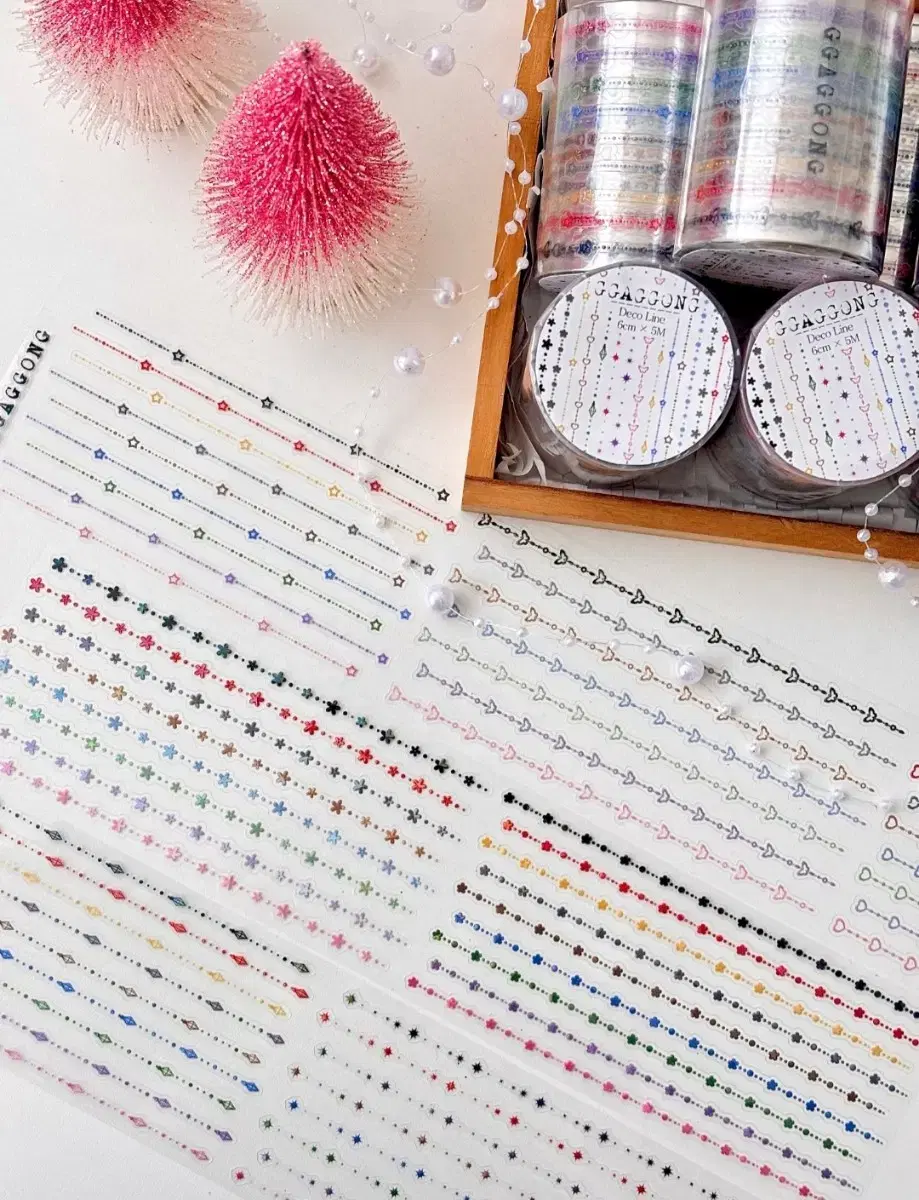 GGAGGONG
GGAGGONG
Deco Line
6cm × 5M
GGAGGONG
Deco Line
6cm × 5M
AGGONG